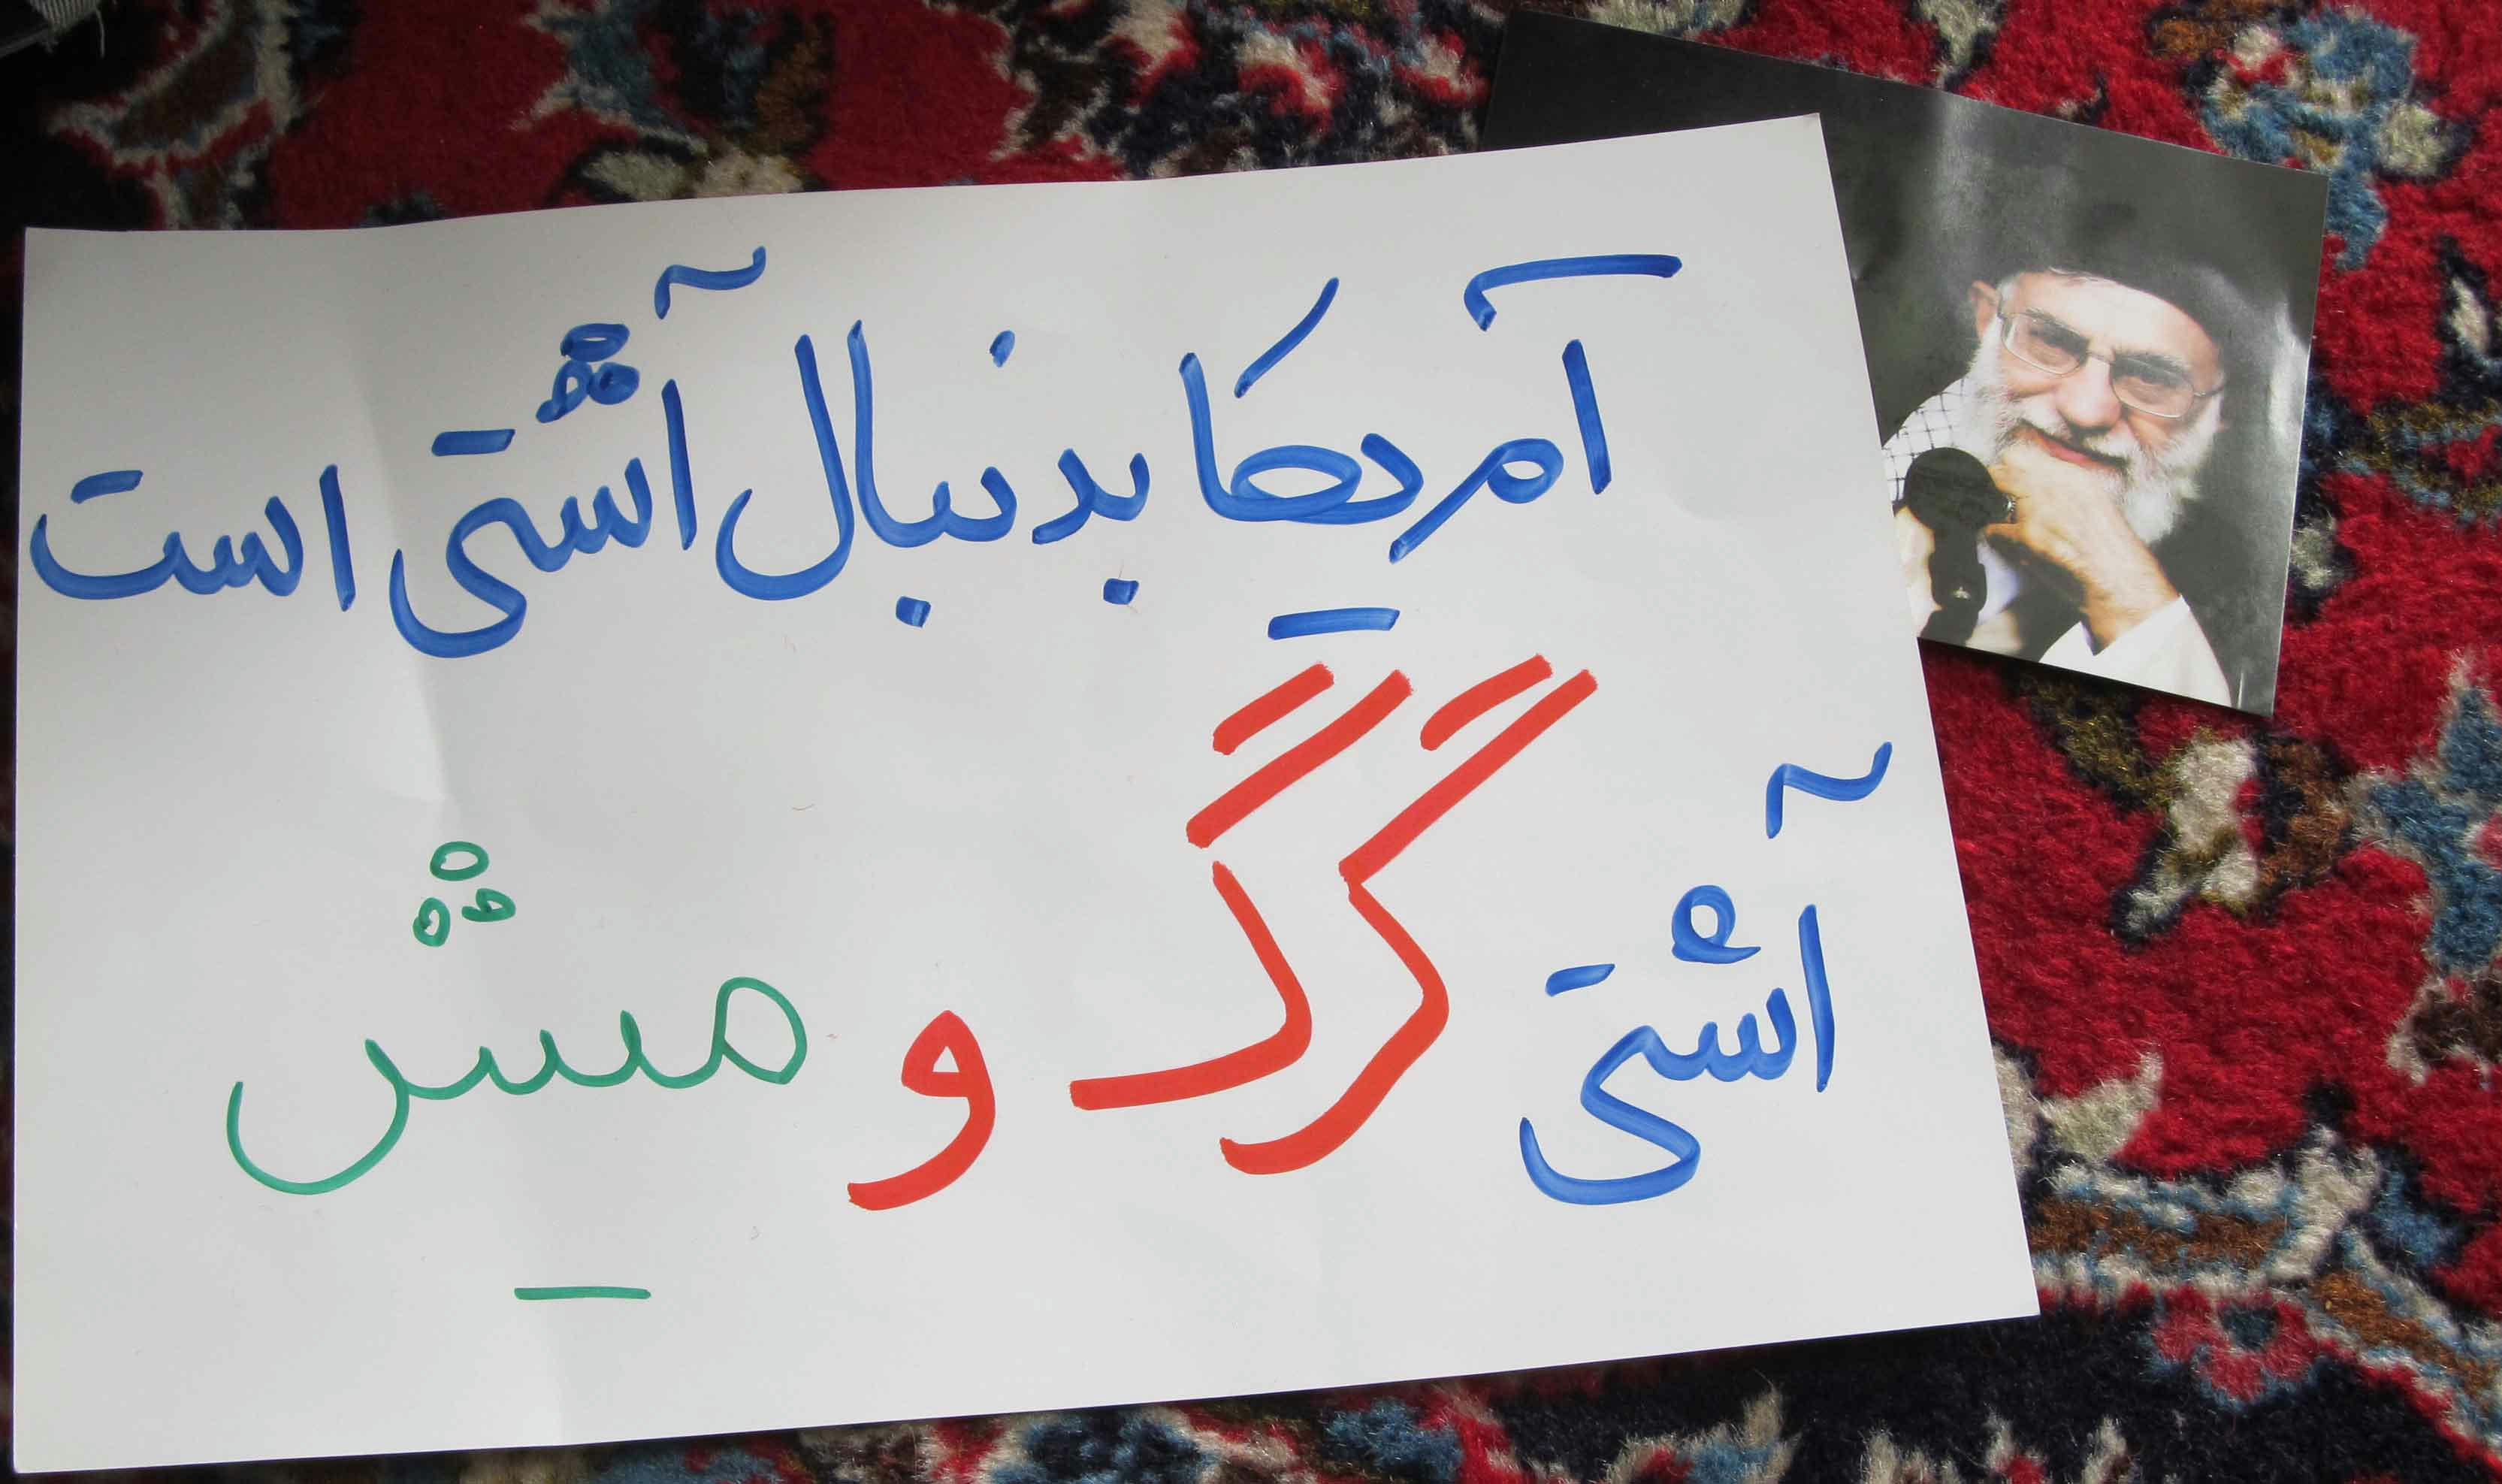 آمریکا بدنبال آشتی است
آشتی گرگ و میش